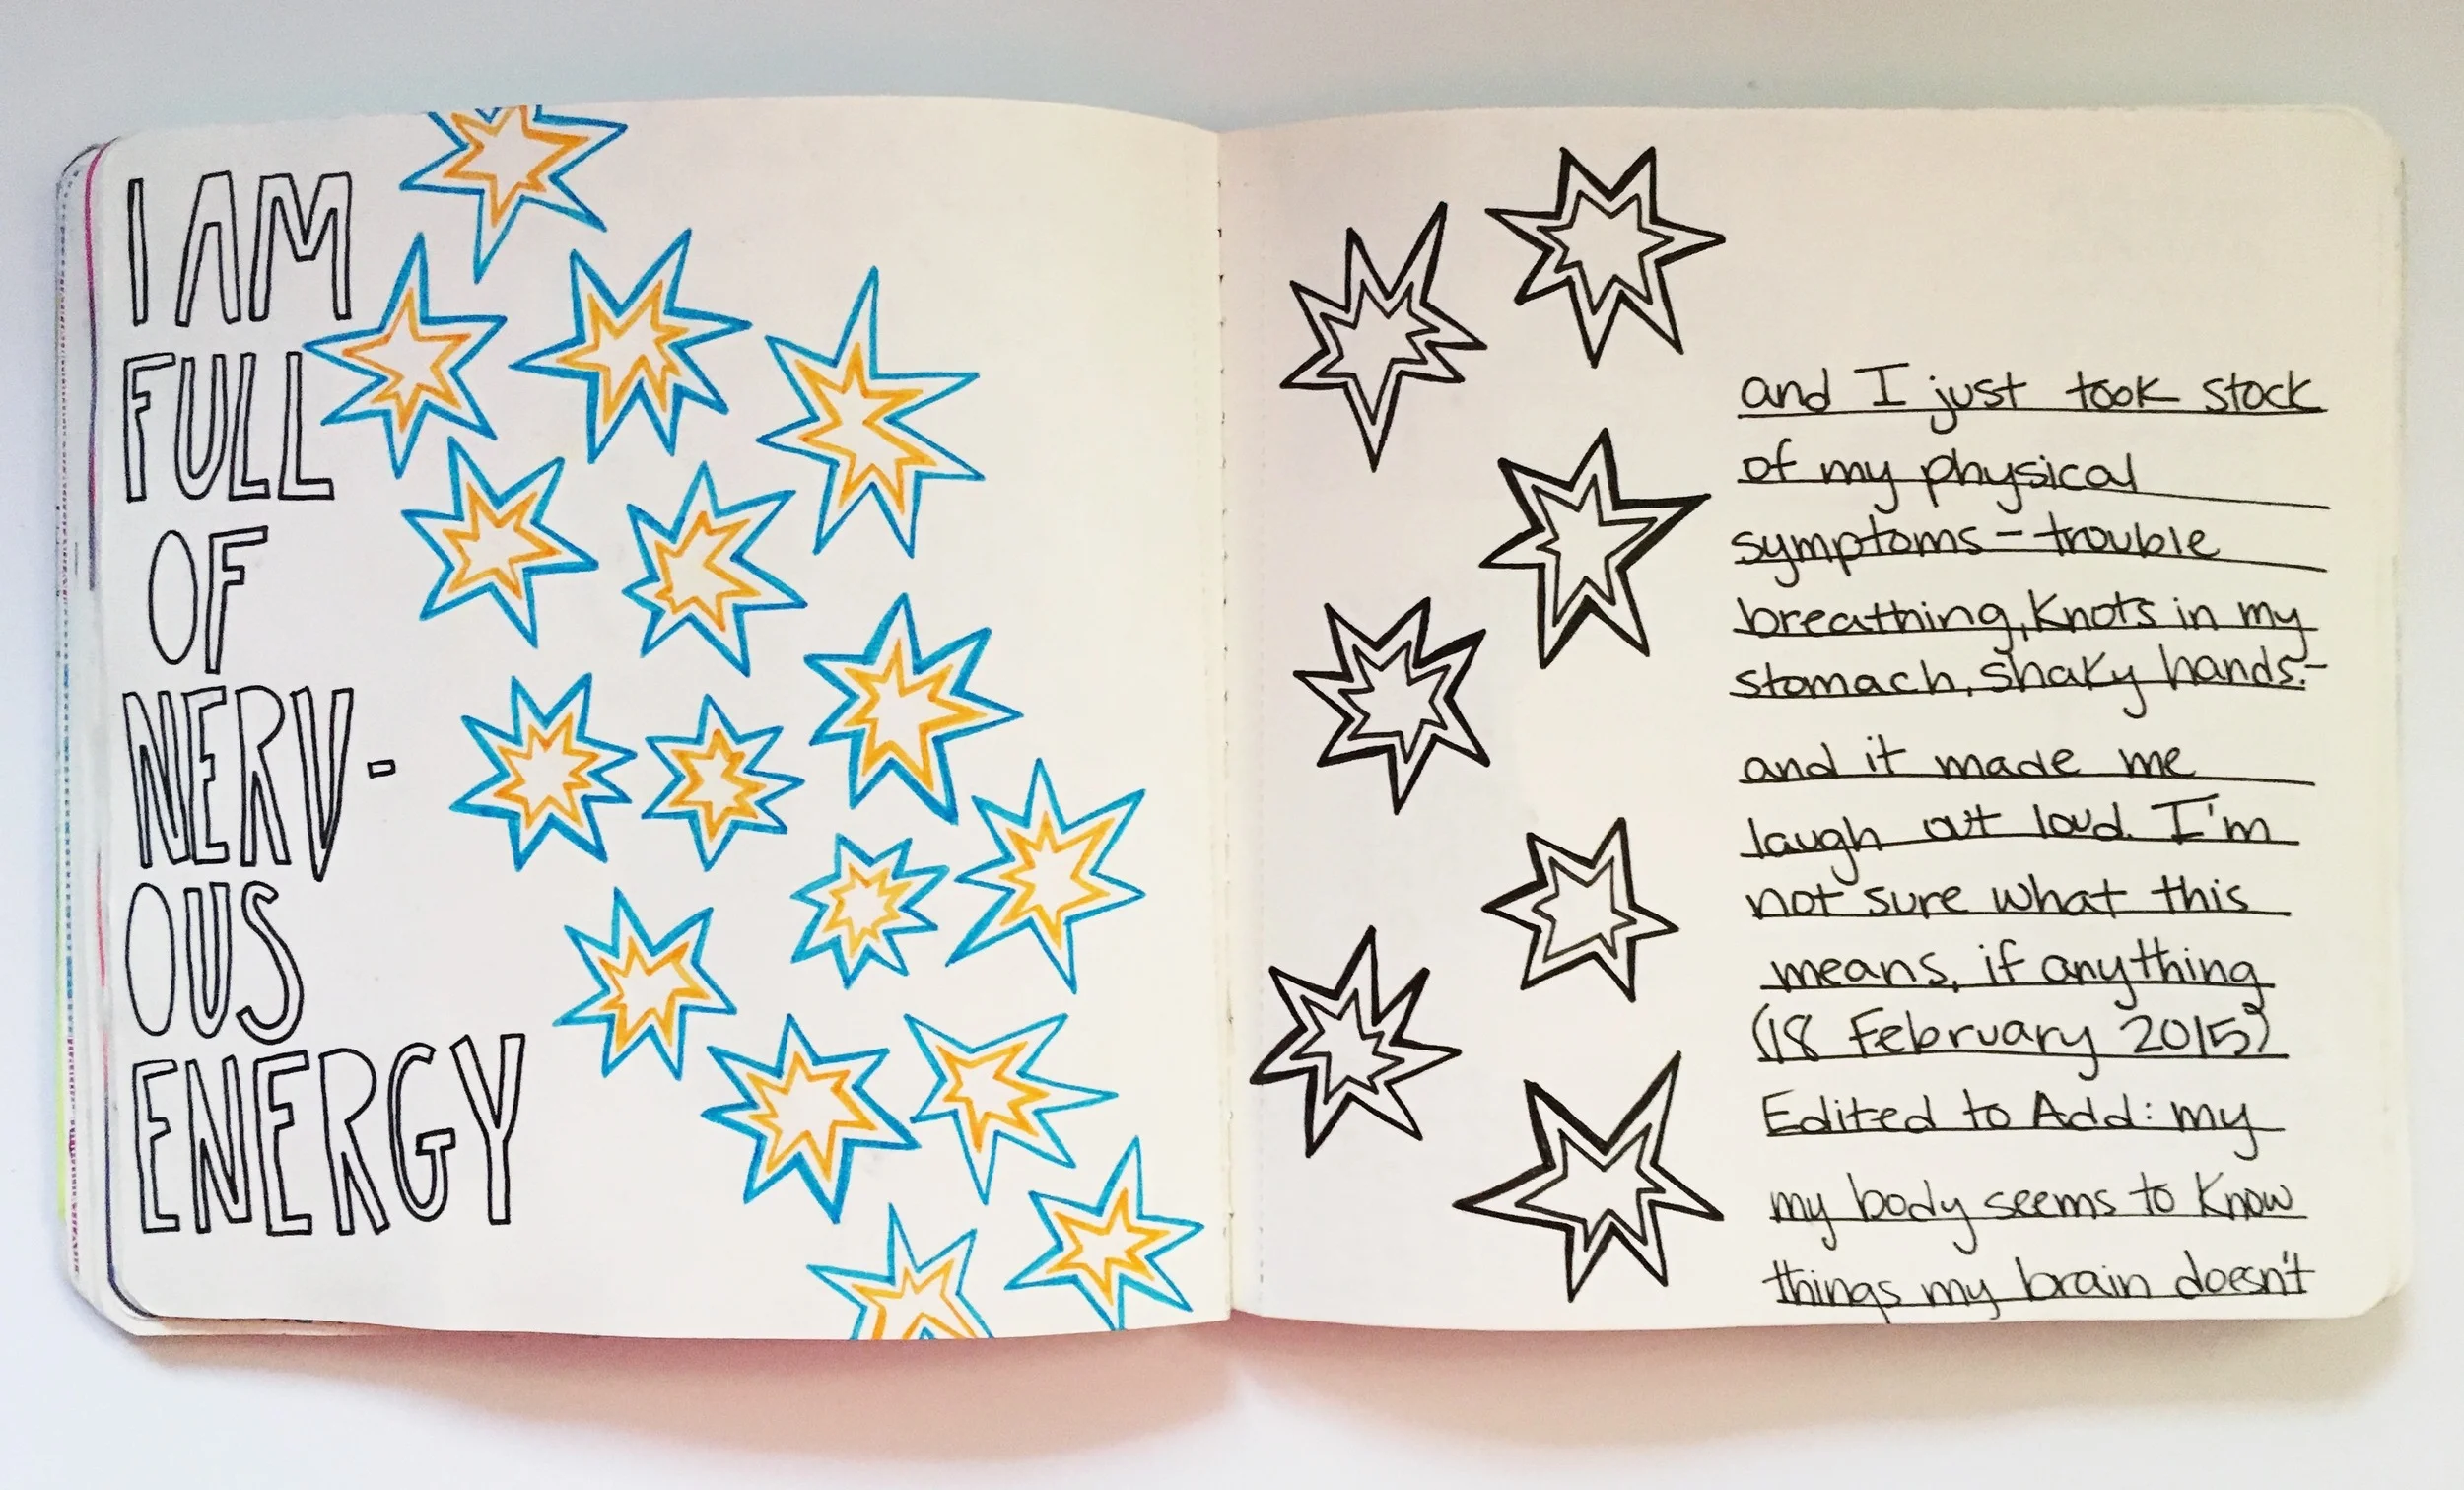 I AM
FULL
OF
NERV-
OUS
ENERGY
and I just took stock
of my physical
symptoms - trouble
breathing, knots in my
stomach, shaky hands. -
and it made me
laugh out loud. I'm
not sure what this
means, if anything
(18 February 2015)
Edited to Add: my
my body seems to know
things my brain doesn't